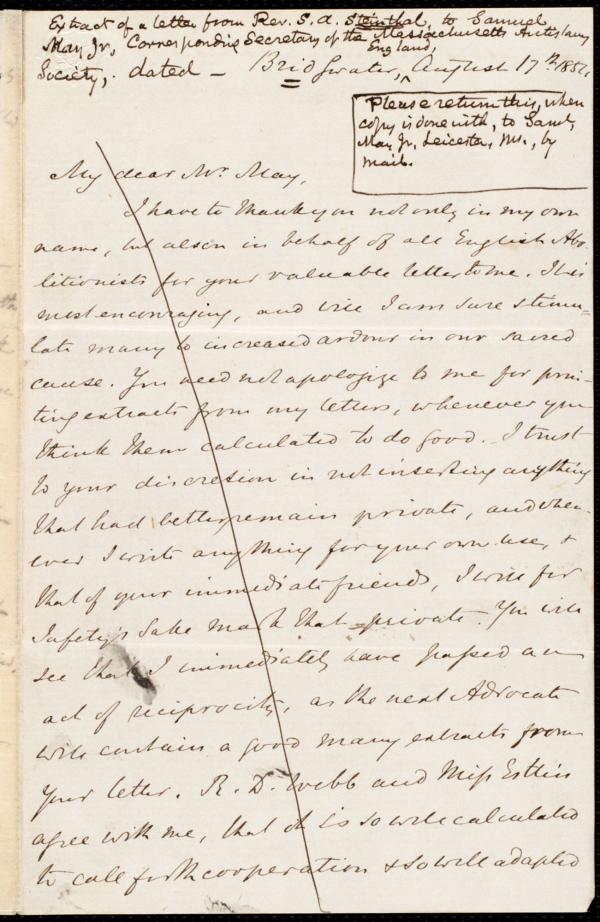 Extract of a letter from Rev. S. A. Steinthal, to Samuel
May, Jr., Corresponding Secretary of the Massachusetts Antislavery
Society, dated – Bridgwater, England, August 17th 1852,
Please return this, when
copy is done with, to Saml.
May, Jr., Leicester, Ms., by
mail.
My dear Mr. May,
I have to thank you not only in my own
name, but also in behalf of all English Abo-
litionists for your valuable letter to me. It is
most encouraging, and will I am sure stimu-
late many to increased ardour in our sacred
cause. You need not apologize to me for prin-
ting extracts from my letters, whenever you
think them calculated to do good. – I trust
to your discretion in not inserting anything
that had better remain private, and when-
ever I write anything for your own use, &
that of your immediate friends, I will for
safety's sake mark that private. You will
see that I immediately have passed an
act of reciprocity, as the next Advocate
will contain a good many extracts from
your letter. R. D. Webb and Miss Estlin
agree with me, that it is so well calculated
to call forth cooperation & so well adapted